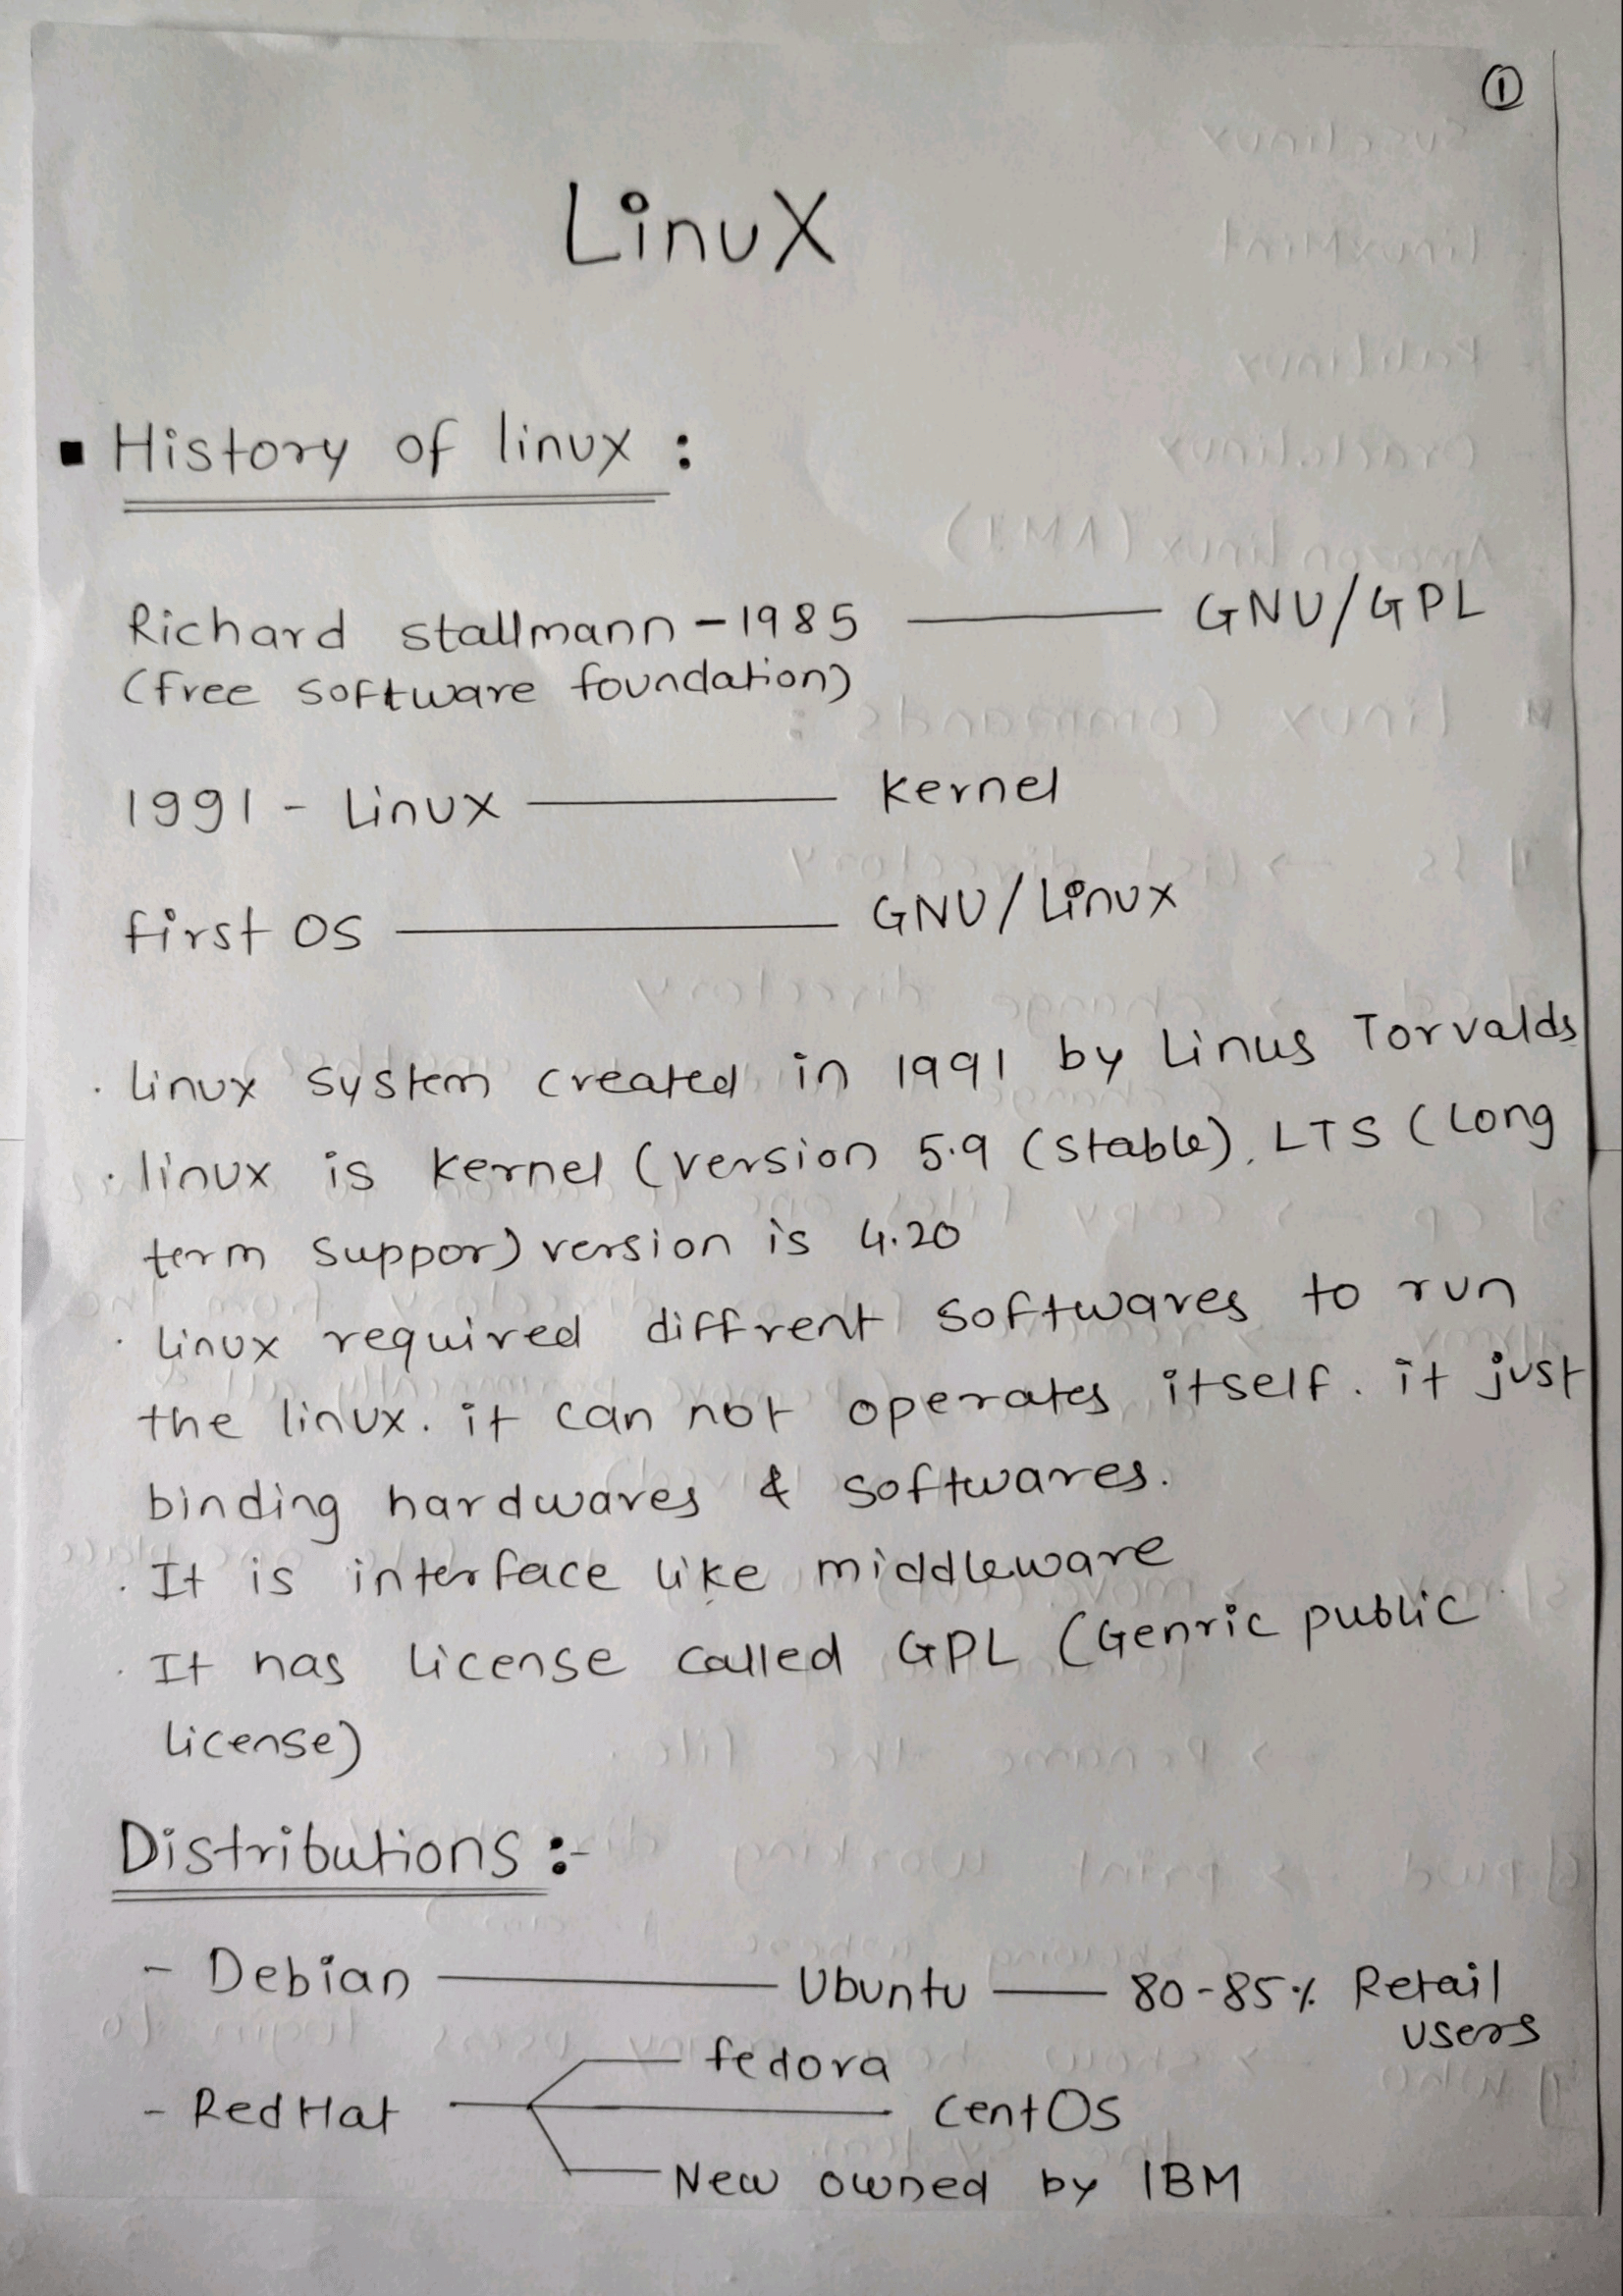 ①
Linux
▪ History of linux :
Richard stallmann - 1985 —— GNU/GPL
(free software foundation)
1991 - Linux —— kernel
first OS —— GNU/Linux
. linux system created in 1991 by Linus Torvalds
. linux is kernel (version 5.9 (stable), LTS (Long
term suppor) version is 4.20
. linux required diffrent softwares to run
the linux. it can not operates itself. it just
binding hardwares & softwares.
. It is interface like middleware
. It has license called GPL (Genric public
license)
Distributions :-
- Debian —— Ubuntu —— 80-85% Retail
users
fedora
- RedHat —— CentOS
New owned by IBM